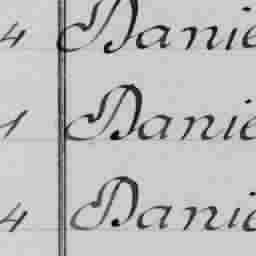 4 Danie
1 Danie
4 Danie